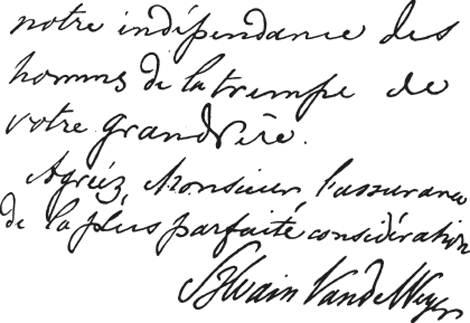 notre indépendance des
hommes de la trempe de
votre grand Père.
Agréez, Monsieur, l'assurance
de la plus parfaite considération
Sylvain Van de Weyer